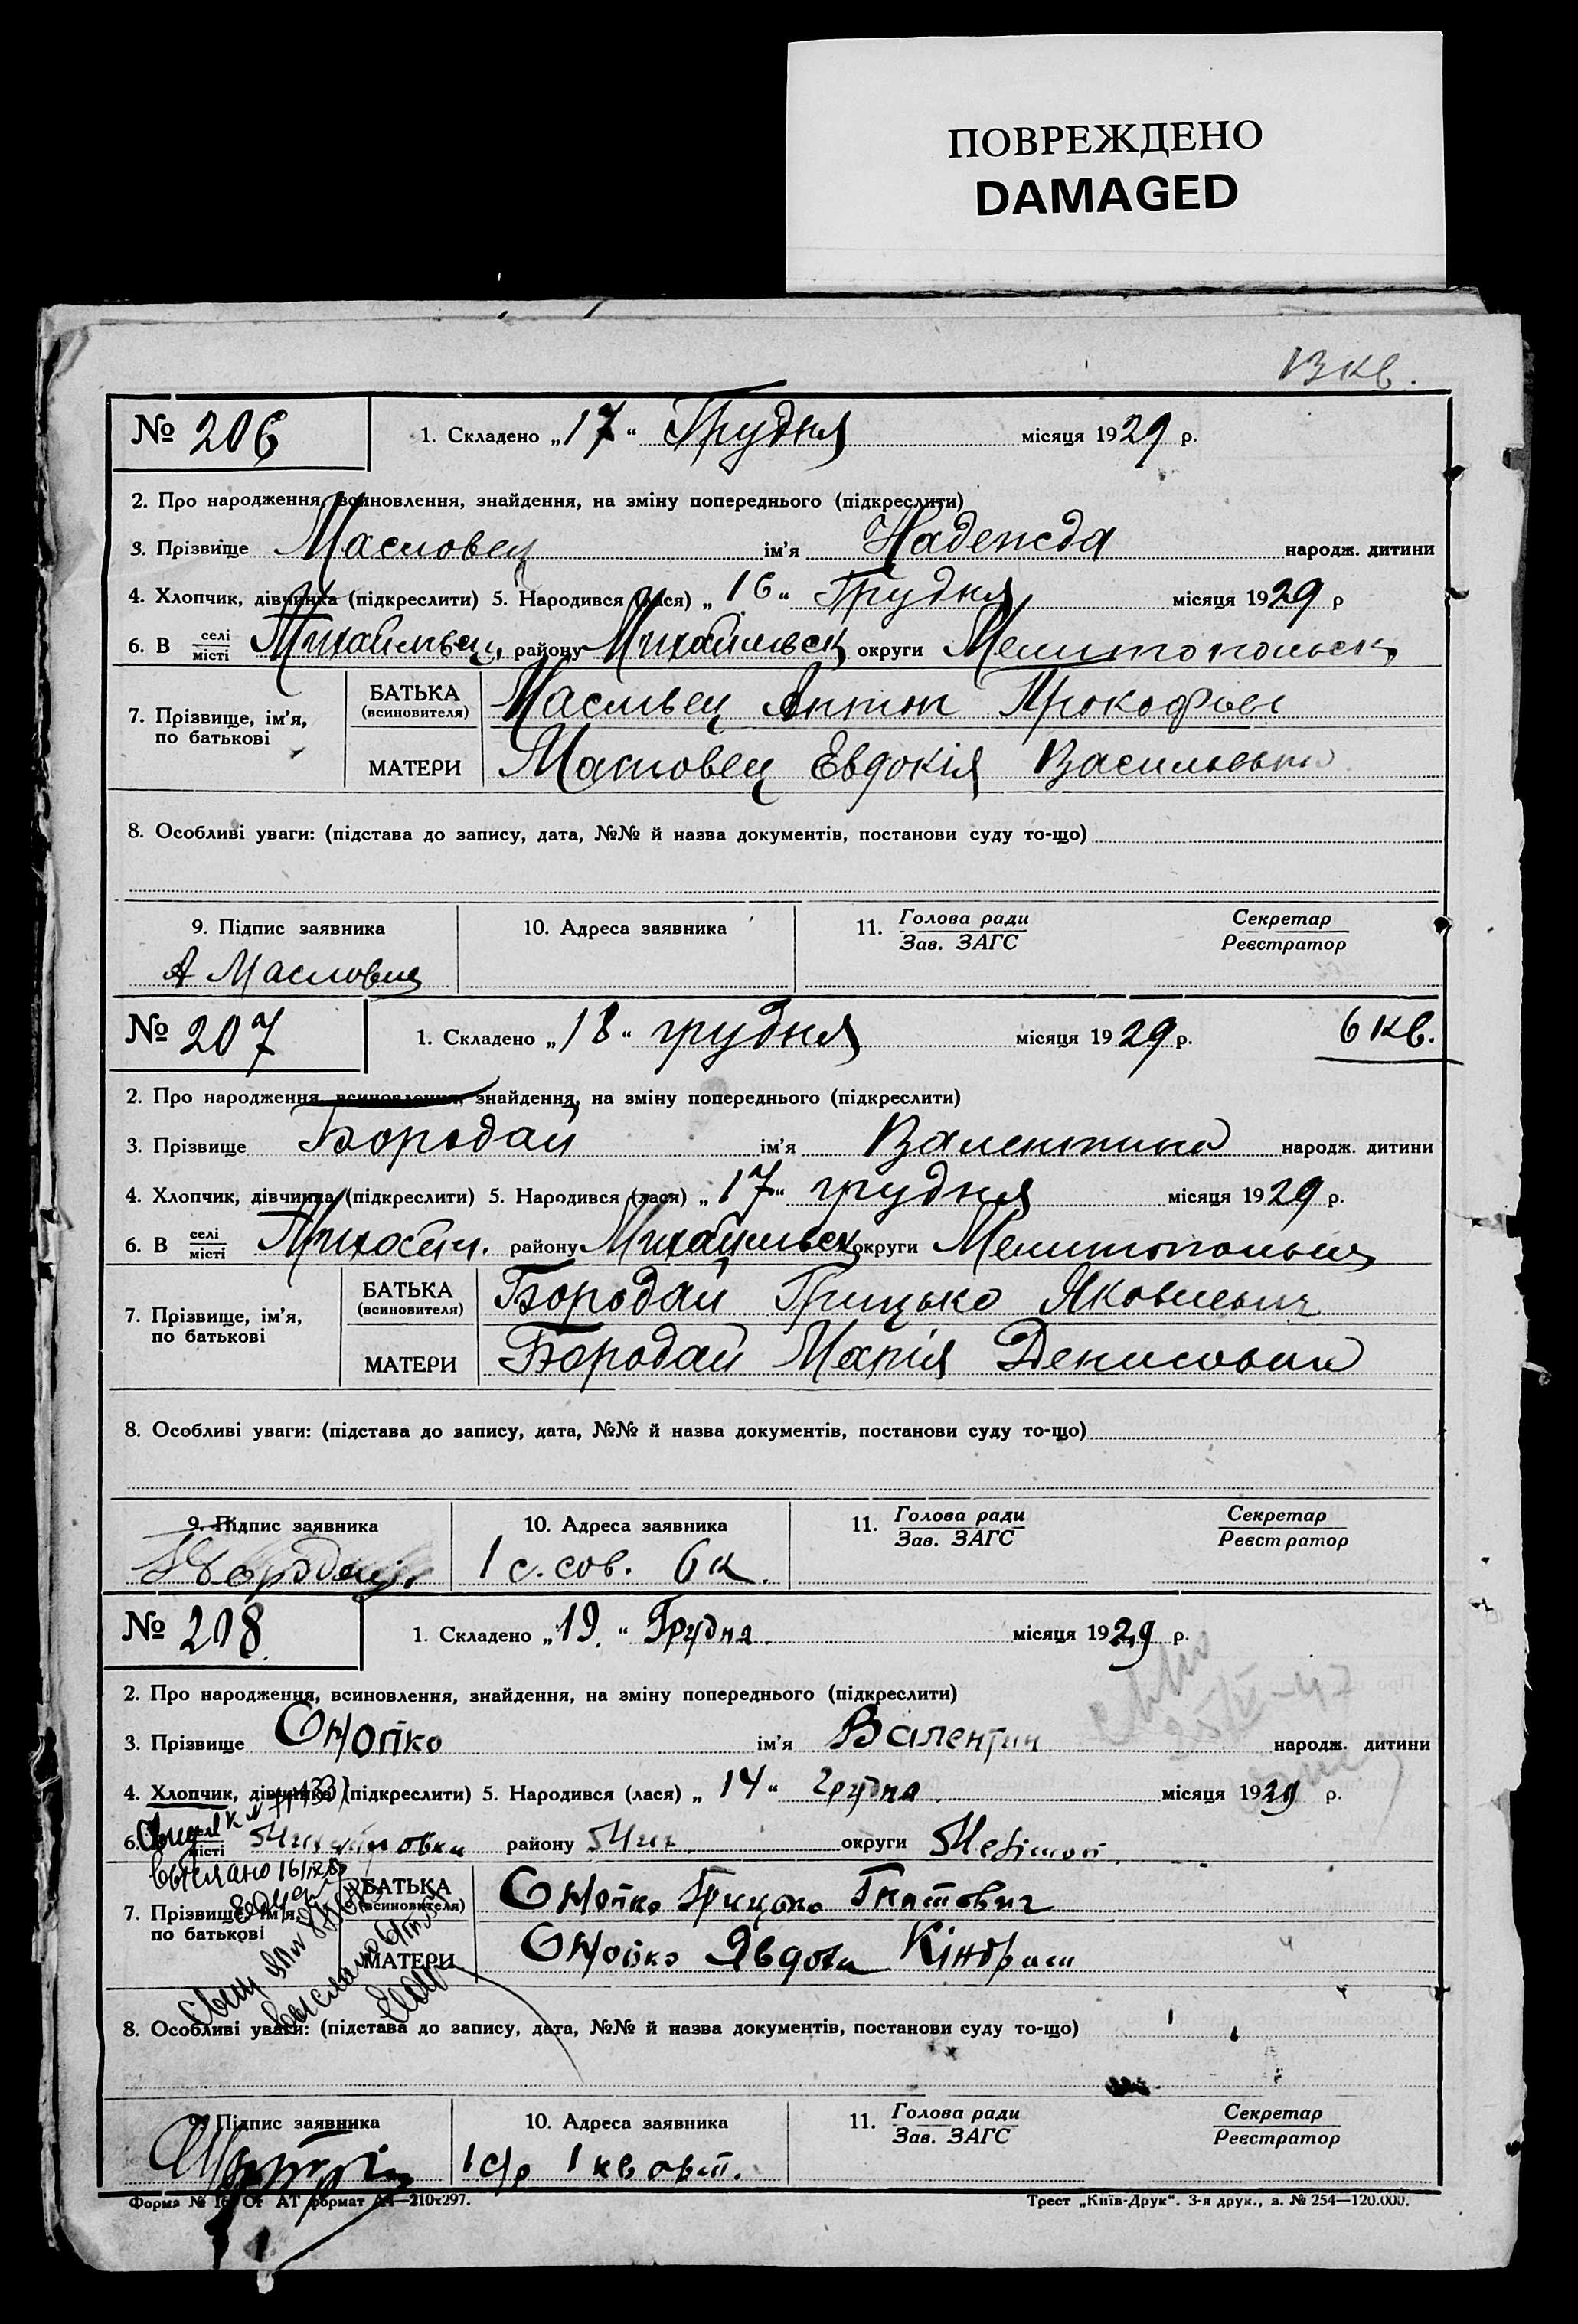 ПОВРЕЖДЕНО
DAMAGED
13 кв.
№ 206 1. Складено „17“ Грудня місяця 1929 р.
2. Про народження, всиновлення, знайдення, на зміну попереднього (підкреслити)
3. Прізвище Масловец ім'я Надежда народж. дитини
4. Хлопчик, дівчинка (підкреслити) 5. Народився (лася) „16“ Грудня місяця 1929 р
6. В селі місті району Михайлівск округи Мелитопольск
7. Прізвище, ім'я, по батькові
БАТЬКА (всиновителя) Маслвец Антон Прокофьев
МАТЕРИ Масловец Евдокія
8. Особливі уваги: (підстава до запису, дата, №№ й назва документів, постанови суду то-що)
9. Підпис заявника 10. Адреса заявника 11. Голова ради Зав. ЗАГС Секретар Реєстратор
А Масловец
№ 207 1. Складено „18“ грудня місяця 1929 р. 6 кв.
2. Про народження, всиновлення, знайдення, на зміну попереднього (підкреслити)
3. Прізвище Бородай ім'я Валентина народж. дитини
4. Хлопчик, дівчинка (підкреслити) 5. Народився (лася) „17“ грудня місяця 1929 р.
6. В селі місті Михайл. району Михайлівск округи
7. Прізвище, ім'я, по батькові
БАТЬКА (всиновителя) Бородай Грицько Яковлевич
МАТЕРИ Бородай Марія Денисовна
8. Особливі уваги: (підстава до запису, дата, №№ й назва документів, постанови суду то-що)
9. Підпис заявника 10. Адреса заявника 11. Голова ради Зав. ЗАГС Секретар Реєстратор
1 с. сов. 6 к.
№ 208. 1. Складено „19.“ Грудня місяця 1929 р.
2. Про народження, всиновлення, знайдення, на зміну попереднього (підкреслити)
3. Прізвище Онопко ім'я Валентин народж. дитини
4. Хлопчик, дівчинка (підкреслити) 5. Народився (лася) „14“ грудня місяця 1929 р.
6. В селі місті району Мих округи
7. Прізвище, ім'я, по батькові
БАТЬКА (всиновителя) Онопко Грицько Гнатович
МАТЕРИ Онопко Явдоха Кіндрат
8. Особливі уваги: (підстава до запису, дата, №№ й назва документів, постанови суду то-що)
9. Підпис заявника 10. Адреса заявника 11. Голова ради Зав. ЗАГС Секретар Реєстратор
1 с/р 1 кварт.
АТ формат А4—210х297. Трест „Київ-Друк“. 3-я друк., з. № 254—120.000.